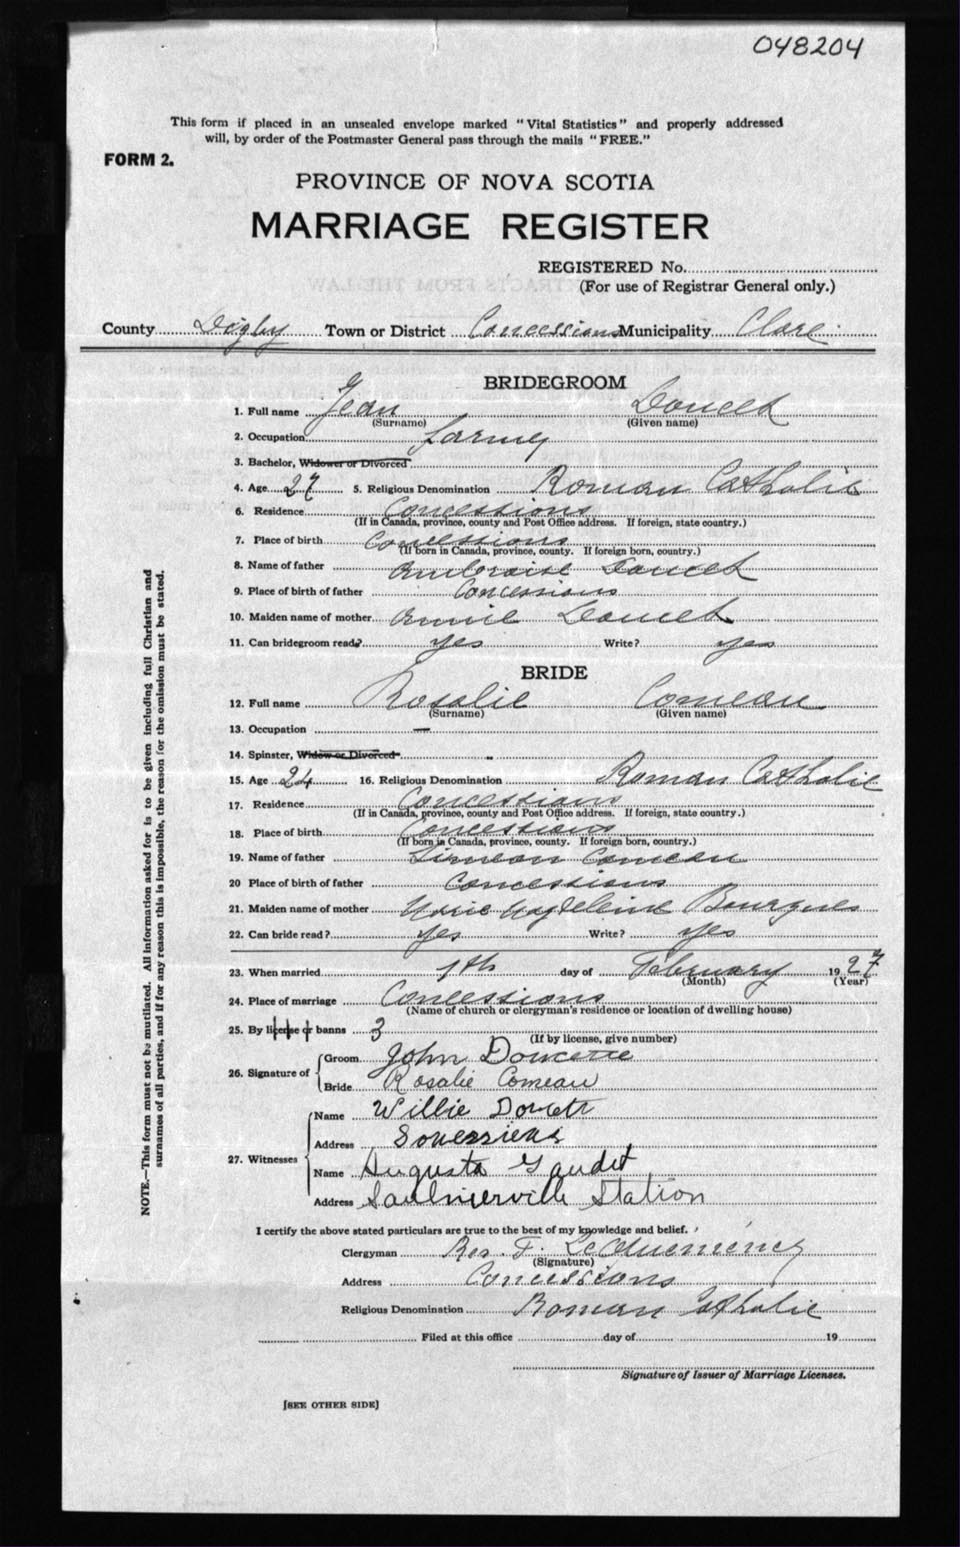 048204
This form if placed in an unsealed envelope marked "Vital Statistics" and properly addressed
will, by order of the Postmaster General pass through the mails "FREE."
FORM 2.
PROVINCE OF NOVA SCOTIA
MARRIAGE REGISTER
REGISTERED No.
(For use of Registrar General only.)
County Digby Town or District Concessions Municipality Clare
BRIDEGROOM
1. Full name Jean Doucet
(Surname) (Given name)
2. Occupation farmer
3. Bachelor, Widower or Divorced
4. Age 27 5. Religious Denomination Roman Catholic
6. Residence Concessions
(If in Canada, province, county and Post Office address. If foreign, state country.)
7. Place of birth Concessions
(If born in Canada, province, county. If foreign born, country.)
8. Name of father Ambroise Doucet
9. Place of birth of father Concessions
10. Maiden name of mother Annie Doucet
11. Can bridegroom read? yes Write? yes
BRIDE
12. Full name Rosalie Comeau
(Surname) (Given name)
13. Occupation —
14. Spinster, Widow or Divorced
15. Age 24 16. Religious Denomination Roman Catholic
17. Residence Concessions
(If in Canada, province, county and Post Office address. If foreign, state country.)
18. Place of birth Concessions
(If born in Canada, province, county. If foreign born, country.)
19. Name of father Simeon Comeau
20 Place of birth of father Concessions
21. Maiden name of mother Marie Magdeleine Bourques
22. Can bride read? yes Write? yes
23. When married 7th day of February 1927
(Month) (Year)
24. Place of marriage Concessions
(Name of church or clergyman's residence or location of dwelling house)
25. By license or banns 3
(If by license, give number)
26. Signature of
Groom John Doucette
Bride Rosalie Comeau
27. Witnesses
Name Willie Doucett
Address
Name Augusta Gaudet
Address Saulnierville Station
I certify the above stated particulars are true to the best of my knowledge and belief.
Clergyman Rev. F. LeQuemener
(Signature)
Address Concessions
Religious Denomination Roman Catholic
Filed at this office day of 19
Signature of Issuer of Marriage Licenses.
[SEE OTHER SIDE]
NOTE.—This form must not be mutilated. All information asked for is to be given including full Christian and
surnames of all parties, and if for any reason this is impossible, the reason for the omission must be stated.